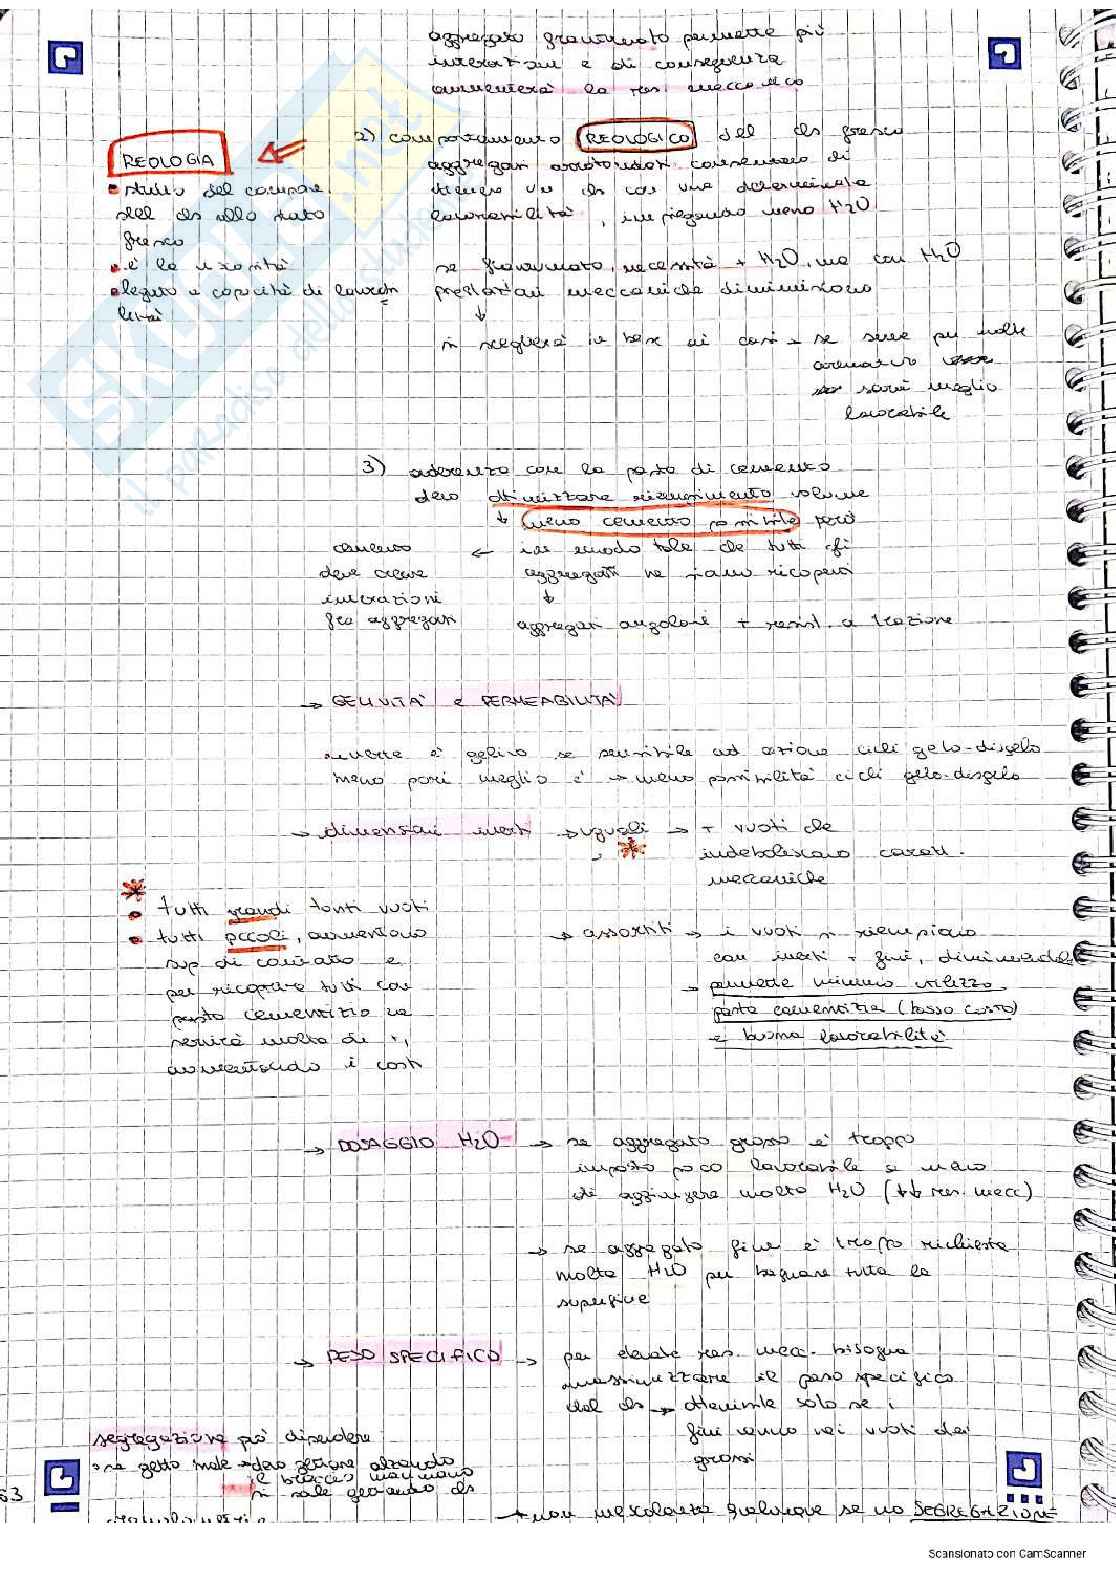 aggregato frantumato permette più
interazioni e di conseguenza
aumenterà la res meccanica
2) comportamento REOLOGICO del cls fresco
aggregati arrotondati consentono di
ottenere un cls con una determinata
lavorabilità, impiegando meno H2O
se frantumato, necessità + H2O, ma con + H2O
prestazioni meccaniche diminuiscono
↓
si sceglierà in base ai casi → se serve per molte
armature
sarà meglio
lavorabile
REOLOGIA
• studio del comport.
del cls allo stato
fresco
• è la viscosità
• legata a capacità di lavora
bilità
3) aderenza con la pasta di cemento
devo ottimizzare riempimento volume
↓ meno cemento possibile però
in modo tale che tutti gli
aggregati ne siano ricoperti
↓
aggregati angolari + resist. a trazione
cemento ←
deve creare
interazioni
fra aggregati
→ GELIVITA' e PERMEABILITA'
inerte è gelivo se sensibile ad azione cicli gelo-disgelo
meno pori meglio è → meno possibilità cicli gelo-disgelo
→ dimensioni inerti → uguali → + vuoti che
* indeboliscono caratt.
meccaniche
*
• tutti grandi tanti vuoti
• tutti piccoli, aumentano
sup di contatto e
per ricoprire tutti con
pasta cementizia ne
servirà molta di +,
aumentando i costi
→ assortiti → i vuoti si riempiono
con inerti + fini, diminuendoli
→ permette minimo utilizzo
pasta cementizia (basso costo)
e buona lavorabilità
→ DOSAGGIO H2O → se aggregato grosso è troppo
impasto poco lavorabile a meno
di aggiungere molto H2O (↓↓ res. mecc)
→ se aggregato fine è troppo richiesta
molta H2O per bagnare tutta la
superficie
→ PESO SPECIFICO → per elevate res. mecc. bisogna
massimizzare il peso specifico
del cls → ottenibile solo se i
fini vanno nei vuoti dei
grossi
segregazione può dipendere
• se getto male → devo gettare alzando
il braccio man mano
si sale gettando cls
→ non mescolare qualunque se no SEGREGAZIONE
63
SKUOLA.net
il paradiso dello studente
Scansionato con CamScanner